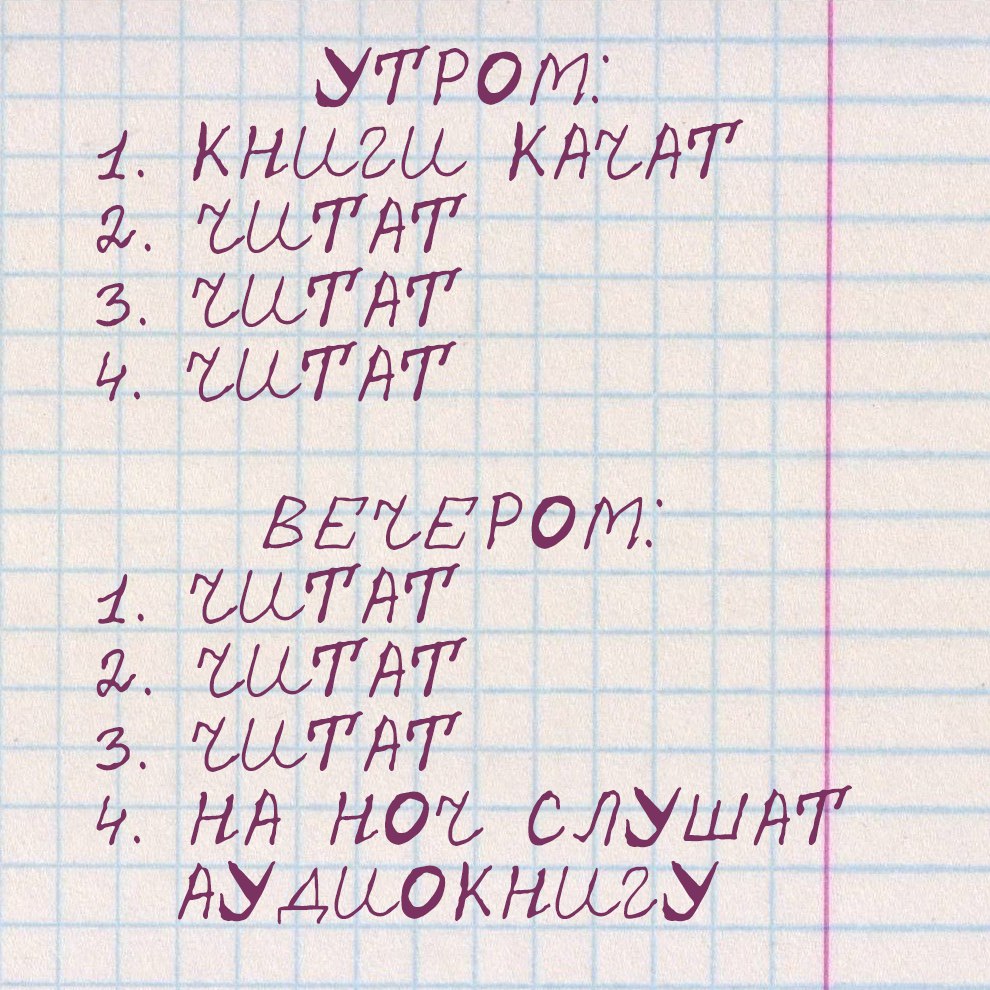 УТРОМ:
1. КНИГИ КАЧАТ
2. ЧИТАТ
3. ЧИТАТ
4. ЧИТАТ
ВЕЧЕРОМ:
1. ЧИТАТ
2. ЧИТАТ
3. ЧИТАТ
4. НА НОЧ СЛУШАТ
АУДИОКНИГУ